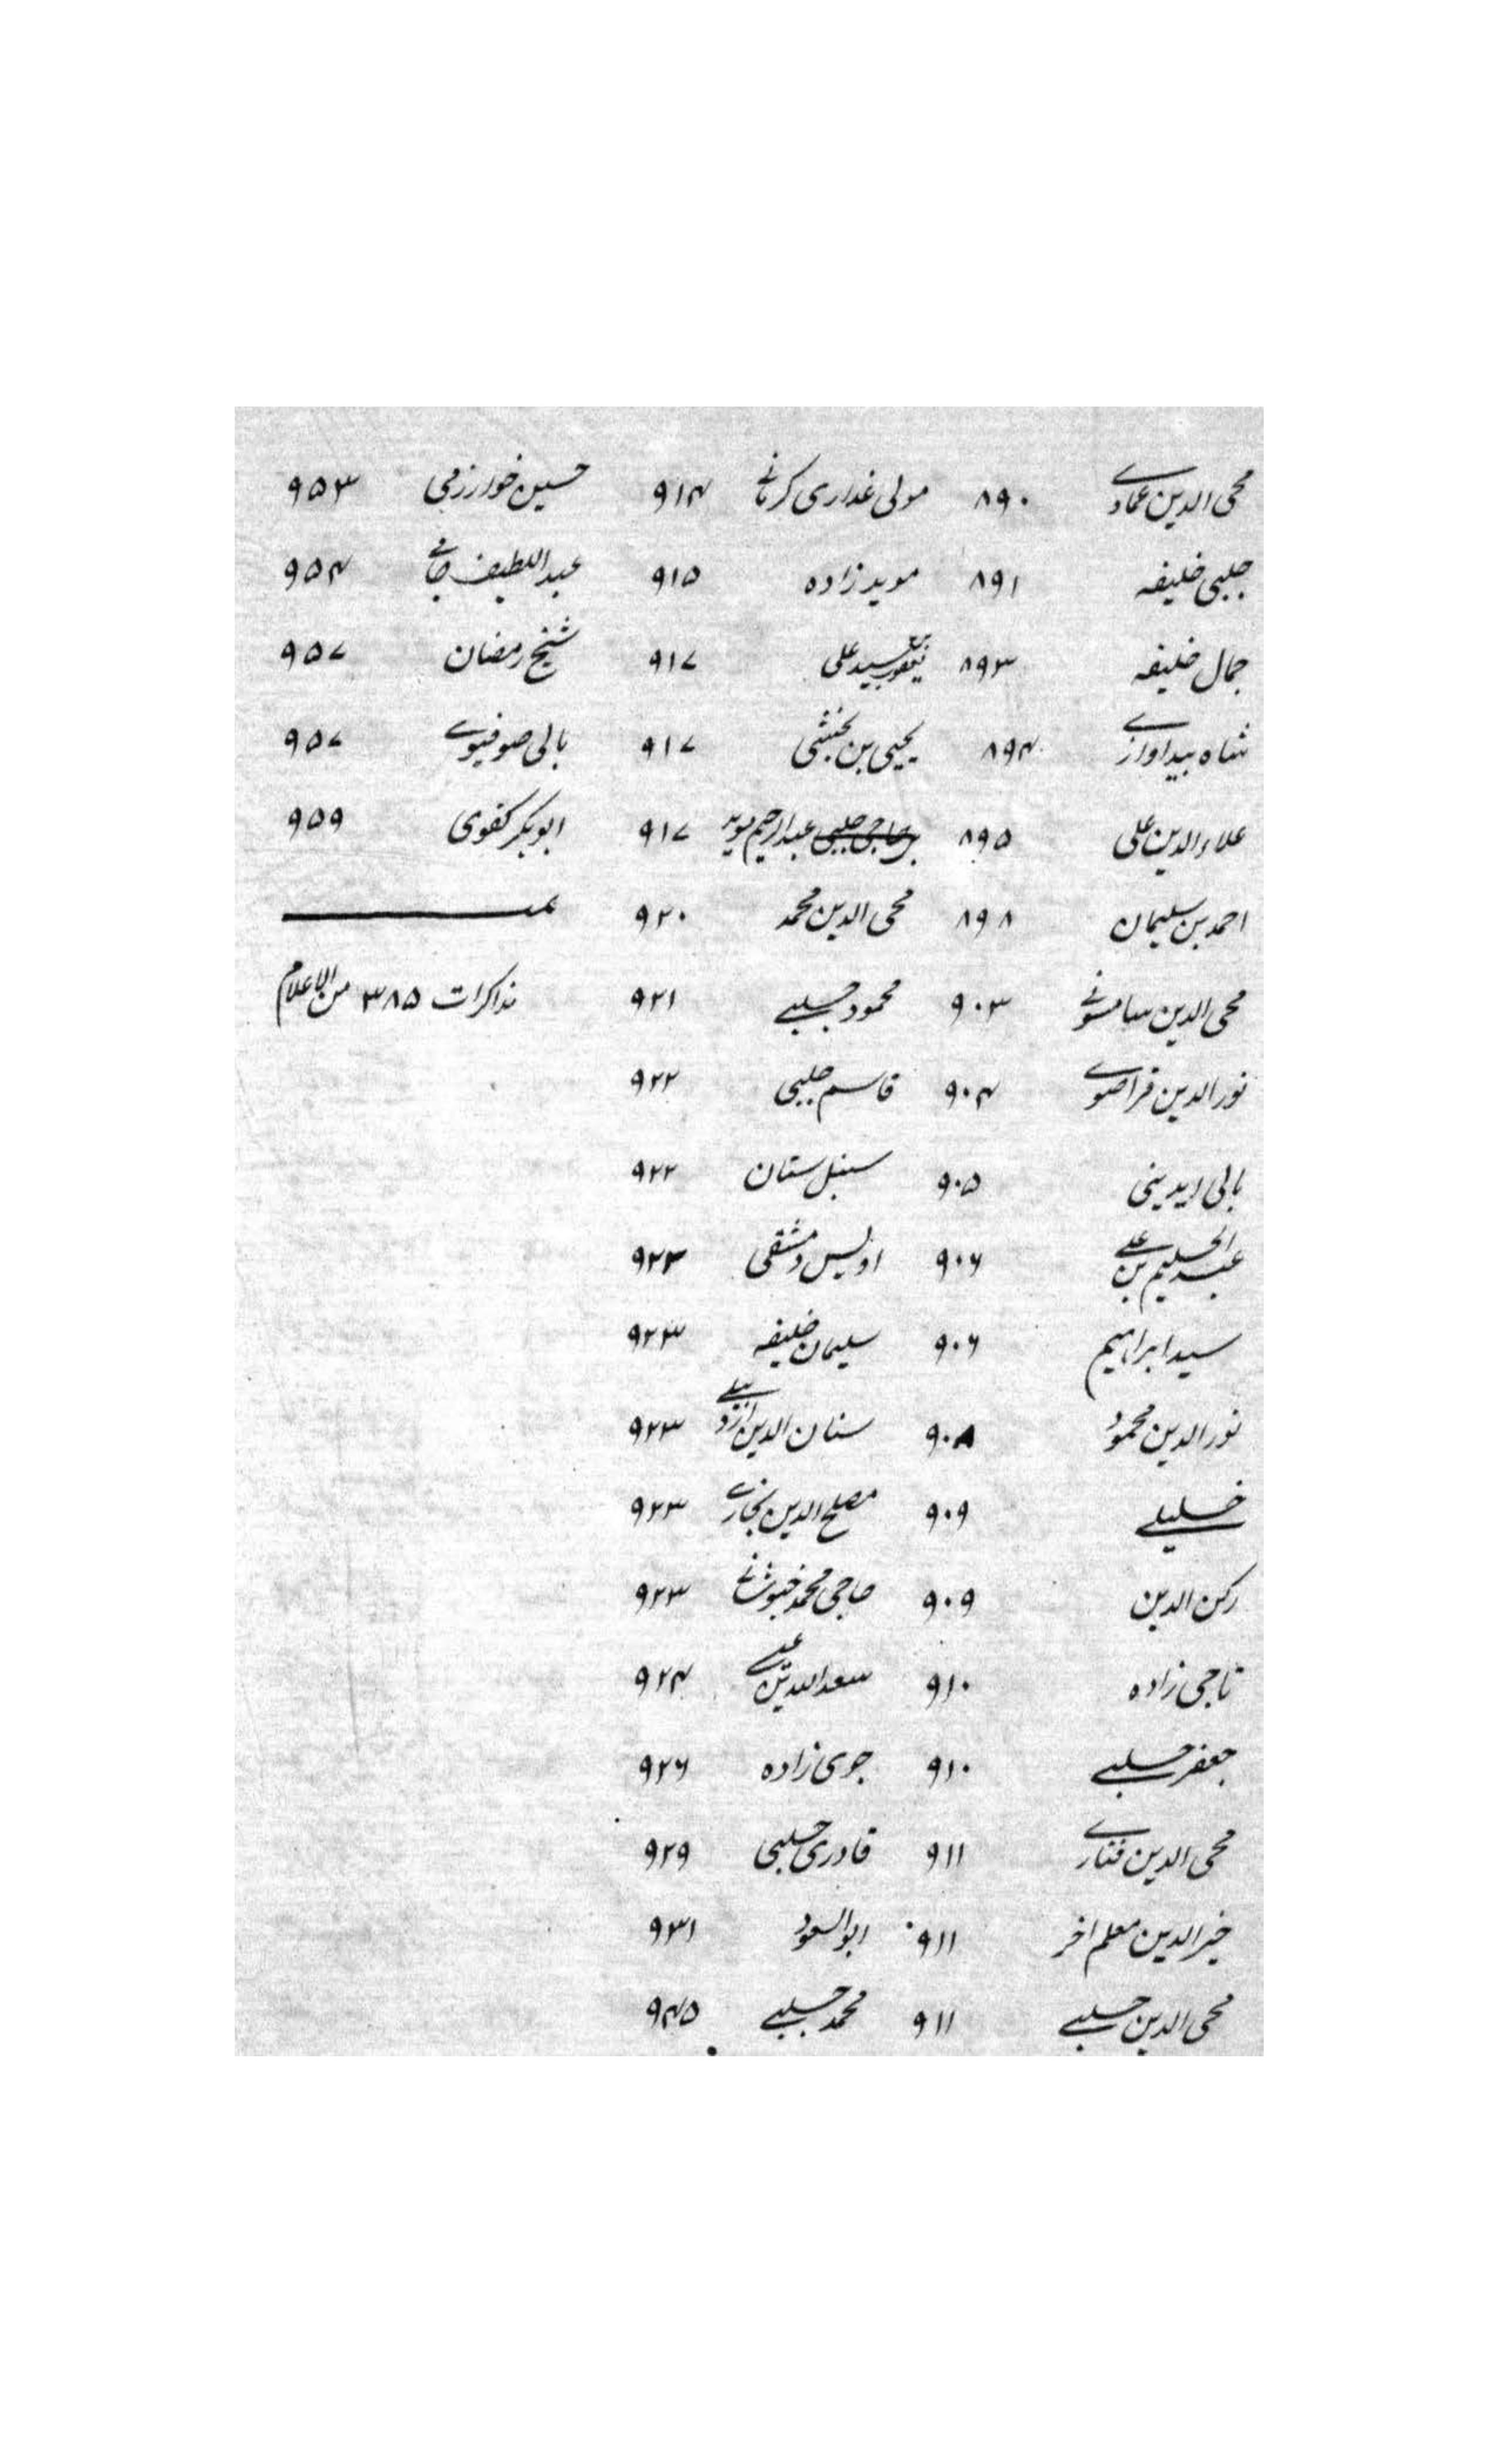 محی الدین عمادے ۸۹۰ مولی غداری کرمانے ۹۱۴ حسین خوارزمی ۹۵۳
چلبی خلیفه ۸۹۱ موید زاده ۹۱۵ عبد اللطیف جامے ۹۵۴
جمال خلیفه ۸۹۳ یعقوب بن سید علی ۹۱۷ شیخ رمضان ۹۵۷
شاه بیداوازے ۸۹۴ یحیی بن بخشی ۹۱۷ بالی صوفیوے ۹۵۷
علاء الدین علی ۸۹۵ حاجی چلبی عبد الرحیم موید ۹۱۷ ابو بکر کفوی ۹۵۹
احمد بن سلیمان ۸۹۸ محی الدین محمد ۹۲۰
محی الدین سامسونے ۹۰۳ محمود چلبے ۹۲۱ مذاکرات ۳۸۵ من الاعلام
نور الدین قراصوے ۹۰۴ قاسم چلبی ۹۲۲
بالی ایدینی ۹۰۵ سنبل سنان ۹۲۲
عبد الحلیم بن علے ۹۰۶ اویس دمشقی ۹۲۳
سید ابراهیم ۹۰۶ سلیمان خلیفه ۹۲۳
نور الدین محمود ۹۰۸ سنان الدین اردبیلے ۹۲۳
خلیلے ۹۰۹ مصلح الدین بخارے ۹۲۳
رکن الدین ۹۰۹ حاجی محمد خبوشانے ۹۲۳
تاجی زاده ۹۱۰ سعد الله بن عیسے ۹۲۴
جعفر چلبے ۹۱۰ جوی زاده ۹۲۶
محی الدین فنارے ۹۱۱ قادری چلبی ۹۲۹
خیر الدین معلم اخر ۹۱۱ ابو السعود ۹۳۱
محی الدین چلبے ۹۱۱ محمد چلبے ۹۴۵